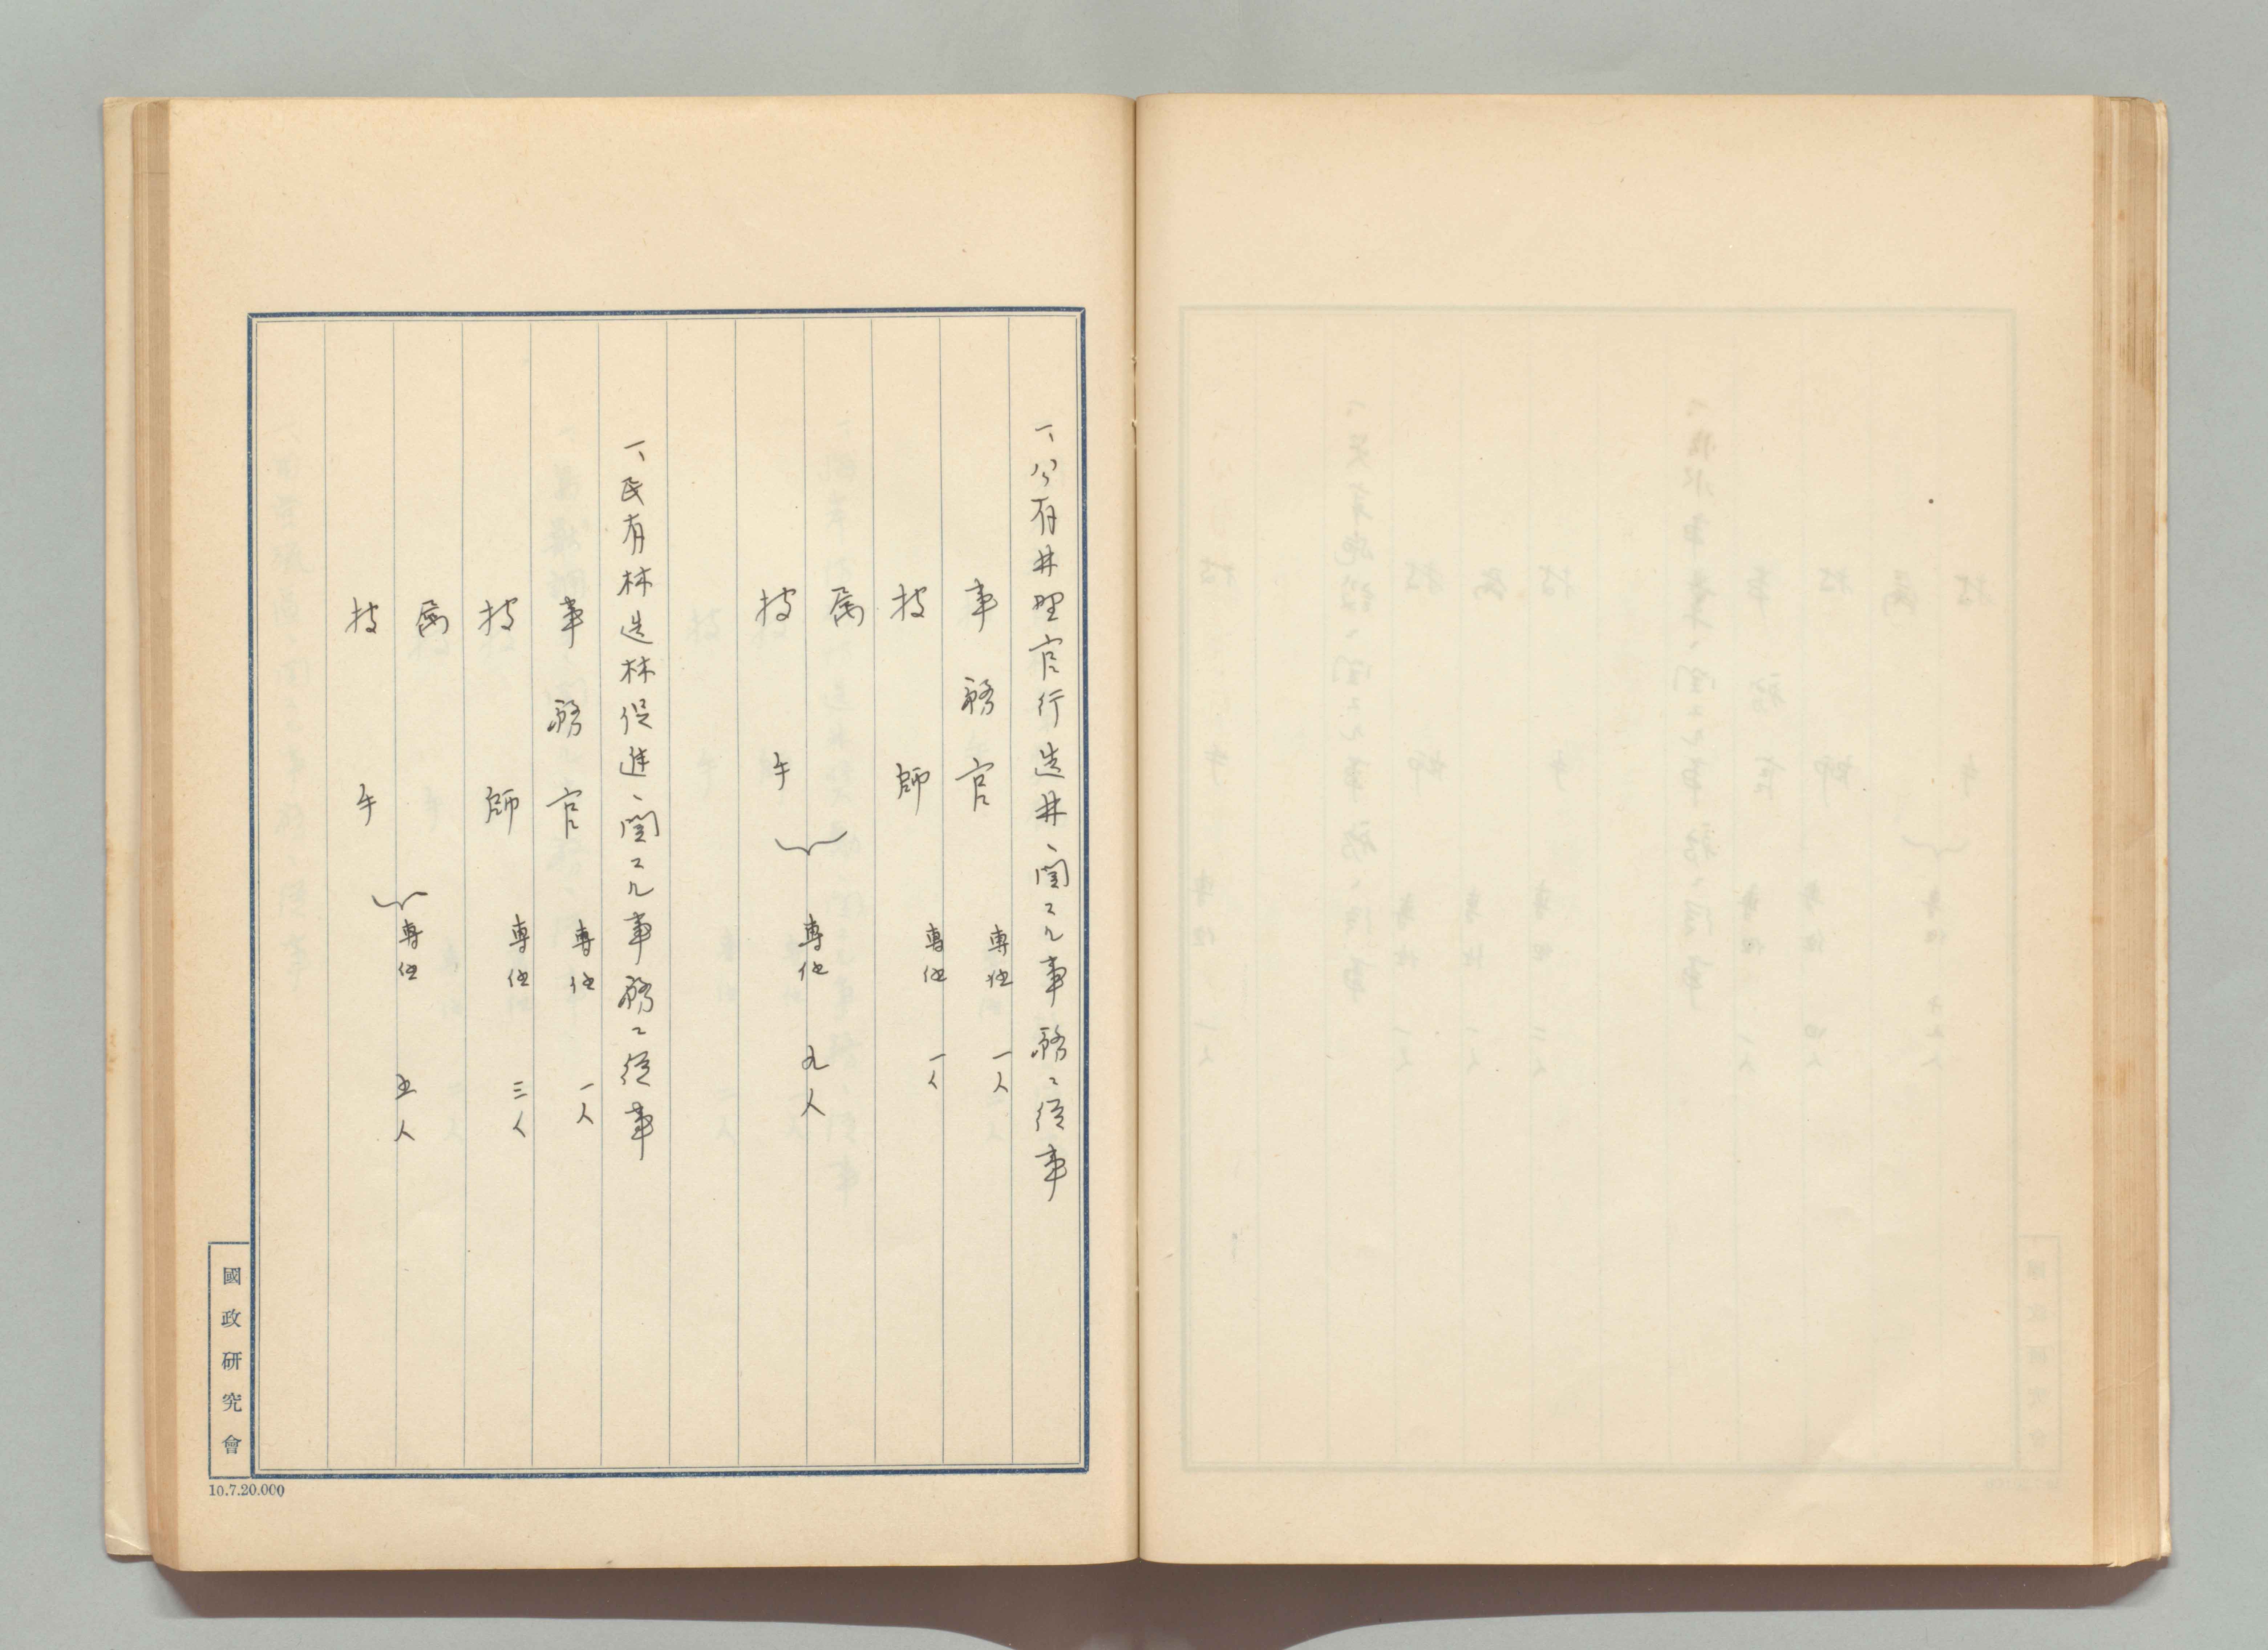 一、公有林野官行造林ニ関スル事務ニ従事
事務官 専任 一人
技師 専任 一人
属
技手 専任 九人
一、民有林造林促進ニ関スル事務ニ従事
事務官 専任 一人
技師 専任 三人
属
技手 専任 五人
國政研究會
10.7.20.000